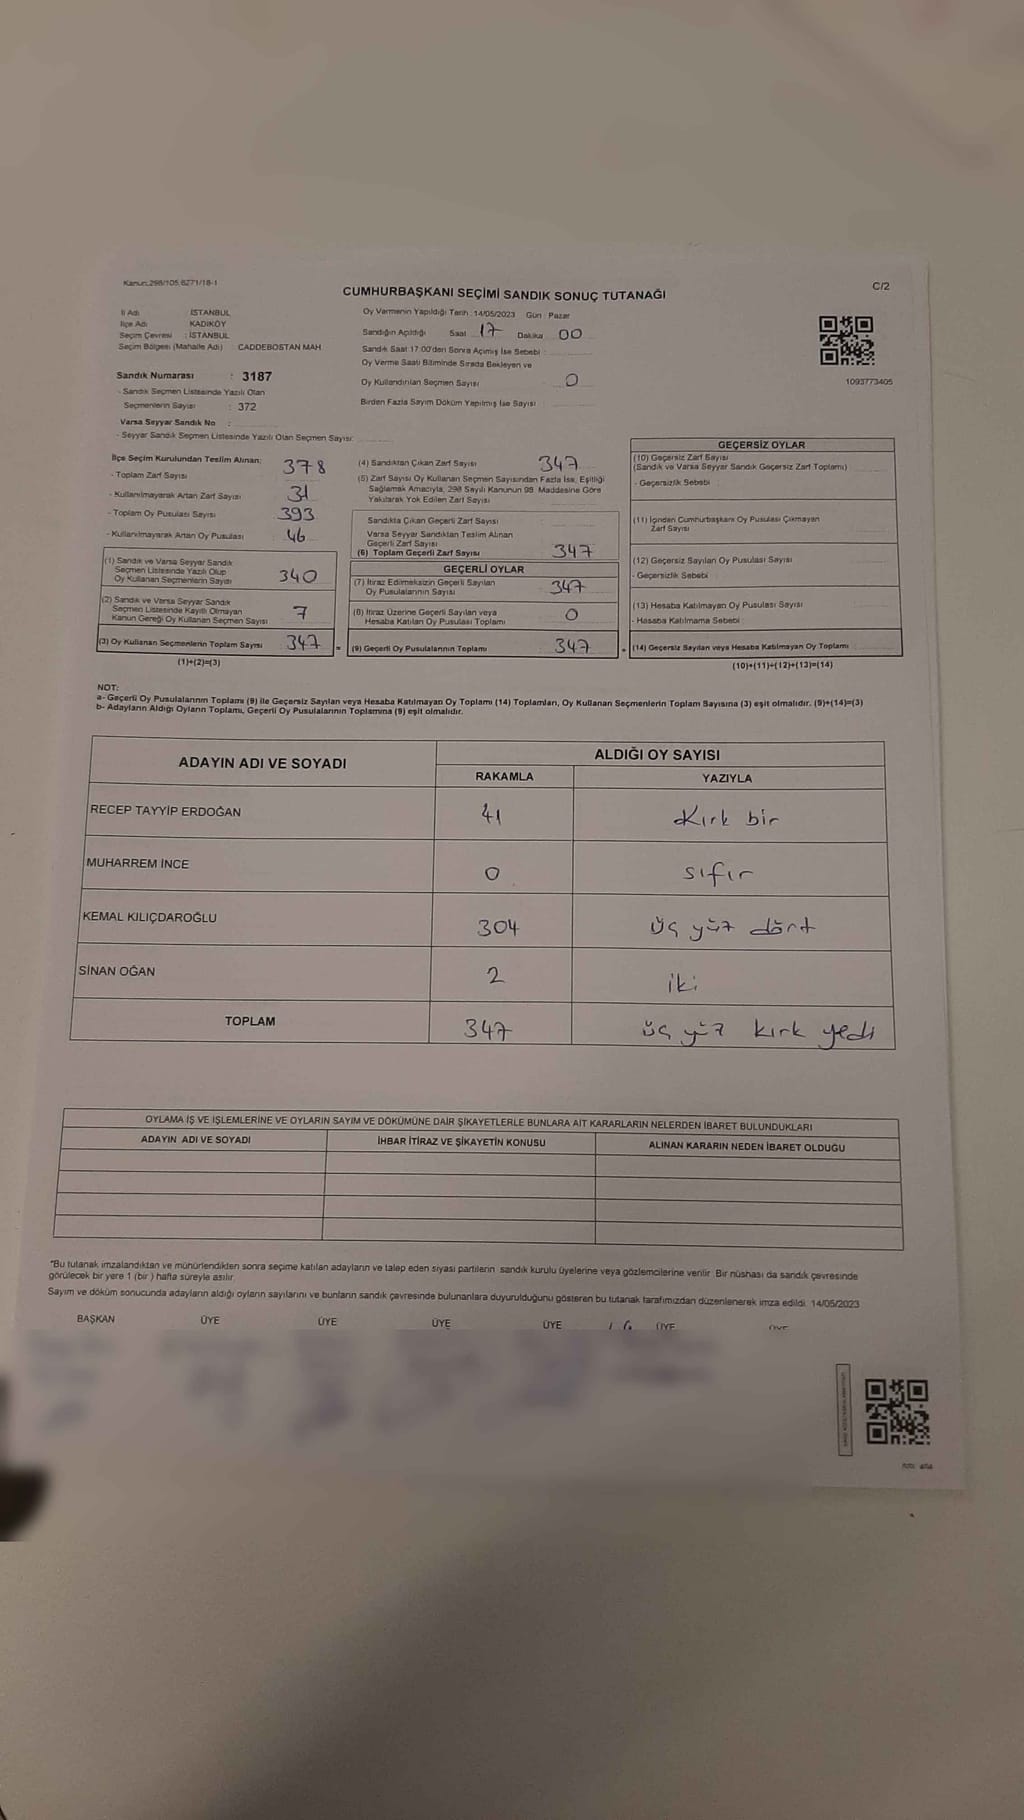 Kanun:298/105,6271/18-1
C/2
CUMHURBAŞKANI SEÇİMİ SANDIK SONUÇ TUTANAĞI
İl Adı İSTANBUL
İlçe Adı KADIKÖY
Seçim Çevresi : İSTANBUL
Seçim Bölgesi (Mahalle Adı) : CADDEBOSTAN MAH
Sandık Numarası : 3187
- Sandık Seçmen Listesinde Yazılı Olan
Seçmenlerin Sayısı : 372
Varsa Seyyar Sandık No :
- Seyyar Sandık Seçmen Listesinde Yazılı Olan Seçmen Sayısı:
Oy Vermenin Yapıldığı Tarih : 14/05/2023 Gün : Pazar
Sandığın Açıldığı Saat 17 Dakika 00
Sandık Saat 17:00'den Sonra Açılmış İse Sebebi :
Oy Verme Saati Bitiminde Sırada Bekleyen ve
Oy Kullandırılan Seçmen Sayısı 0
Birden Fazla Sayım Döküm Yapılmış İse Sayısı
1093773405
İlçe Seçim Kurulundan Teslim Alınan: 378
- Toplam Zarf Sayısı
- Kullanılmayarak Artan Zarf Sayısı 31
- Toplam Oy Pusulası Sayısı 393
- Kullanılmayarak Artan Oy Pusulası 46
(1) Sandık ve Varsa Seyyar Sandık
Seçmen Listesinde Yazılı Olup
Oy Kullanan Seçmenlerin Sayısı 340
(2) Sandık ve Varsa Seyyar Sandık
Seçmen Listesinde Kayıtlı Olmayan
Kanun Gereği Oy Kullanan Seçmen Sayısı 7
(3) Oy Kullanan Seçmenlerin Toplam Sayısı 347
(1)+(2)=(3)
(4) Sandıktan Çıkan Zarf Sayısı 347
(5) Zarf Sayısı Oy Kullanan Seçmen Sayısından Fazla İse, Eşitliği
Sağlamak Amacıyla, 298 Sayılı Kanunun 98. Maddesine Göre
Yakılarak Yok Edilen Zarf Sayısı
Sandıkta Çıkan Geçerli Zarf Sayısı
Varsa Seyyar Sandıktan Teslim Alınan
Geçerli Zarf Sayısı
(6) Toplam Geçerli Zarf Sayısı 347
GEÇERLİ OYLAR
(7) İtiraz Edilmeksizin Geçerli Sayılan
Oy Pusulalarının Sayısı 347
(8) İtiraz Üzerine Geçerli Sayılan veya
Hesaba Katılan Oy Pusulası Toplamı 0
= (9) Geçerli Oy Pusulalarının Toplamı 347
GEÇERSİZ OYLAR
(10) Geçersiz Zarf Sayısı
(Sandık ve Varsa Seyyar Sandık Geçersiz Zarf Toplamı)
- Geçersizlik Sebebi :
(11) İçinden Cumhurbaşkanı Oy Pusulası Çıkmayan
Zarf Sayısı
(12) Geçersiz Sayılan Oy Pusulası Sayısı
- Geçersizlik Sebebi :
(13) Hesaba Katılmayan Oy Pusulası Sayısı
- Hasaba Katılmama Sebebi :
+ (14) Geçersiz Sayılan veya Hesaba Katılmayan Oy Toplamı
(10)+(11)+(12)+(13)=(14)
NOT:
a- Geçerli Oy Pusulalarının Toplamı (9) ile Geçersiz Sayılan veya Hesaba Katılmayan Oy Toplamı (14) Toplamları, Oy Kullanan Seçmenlerin Toplam Sayısına (3) eşit olmalıdır. (9)+(14)=(3)
b- Adayların Aldığı Oyların Toplamı, Geçerli Oy Pusulalarının Toplamına (9) eşit olmalıdır.
ADAYIN ADI VE SOYADI ALDIĞI OY SAYISI
RAKAMLA YAZIYLA
RECEP TAYYİP ERDOĞAN 41 Kırk bir
MUHARREM İNCE 0 sıfır
KEMAL KILIÇDAROĞLU 304 üç yüz dört
SİNAN OĞAN 2 iki
TOPLAM 347 üç yüz kırk yedi
OYLAMA İŞ VE İŞLEMLERİNE VE OYLARIN SAYIM VE DÖKÜMÜNE DAİR ŞİKAYETLERLE BUNLARA AİT KARARLARIN NELERDEN İBARET BULUNDUKLARI
ADAYIN ADI VE SOYADI İHBAR İTİRAZ VE ŞİKAYETİN KONUSU ALINAN KARARIN NEDEN İBARET OLDUĞU
"Bu tutanak imzalandıktan ve mühürlendikten sonra seçime katılan adayların ve talep eden siyasi partilerin sandık kurulu üyelerine veya gözlemcilerine verilir. Bir nüshası da sandık çevresinde
görülecek bir yere 1 (bir ) hafta süreyle asılır.
Sayım ve döküm sonucunda adayların aldığı oyların sayılarını ve bunların sandık çevresinde bulunanlara duyurulduğunu gösteren bu tutanak tarafımızdan düzenlenerek imza edildi. 14/05/2023
BAŞKAN ÜYE ÜYE ÜYE ÜYE ÜYE ÜYE